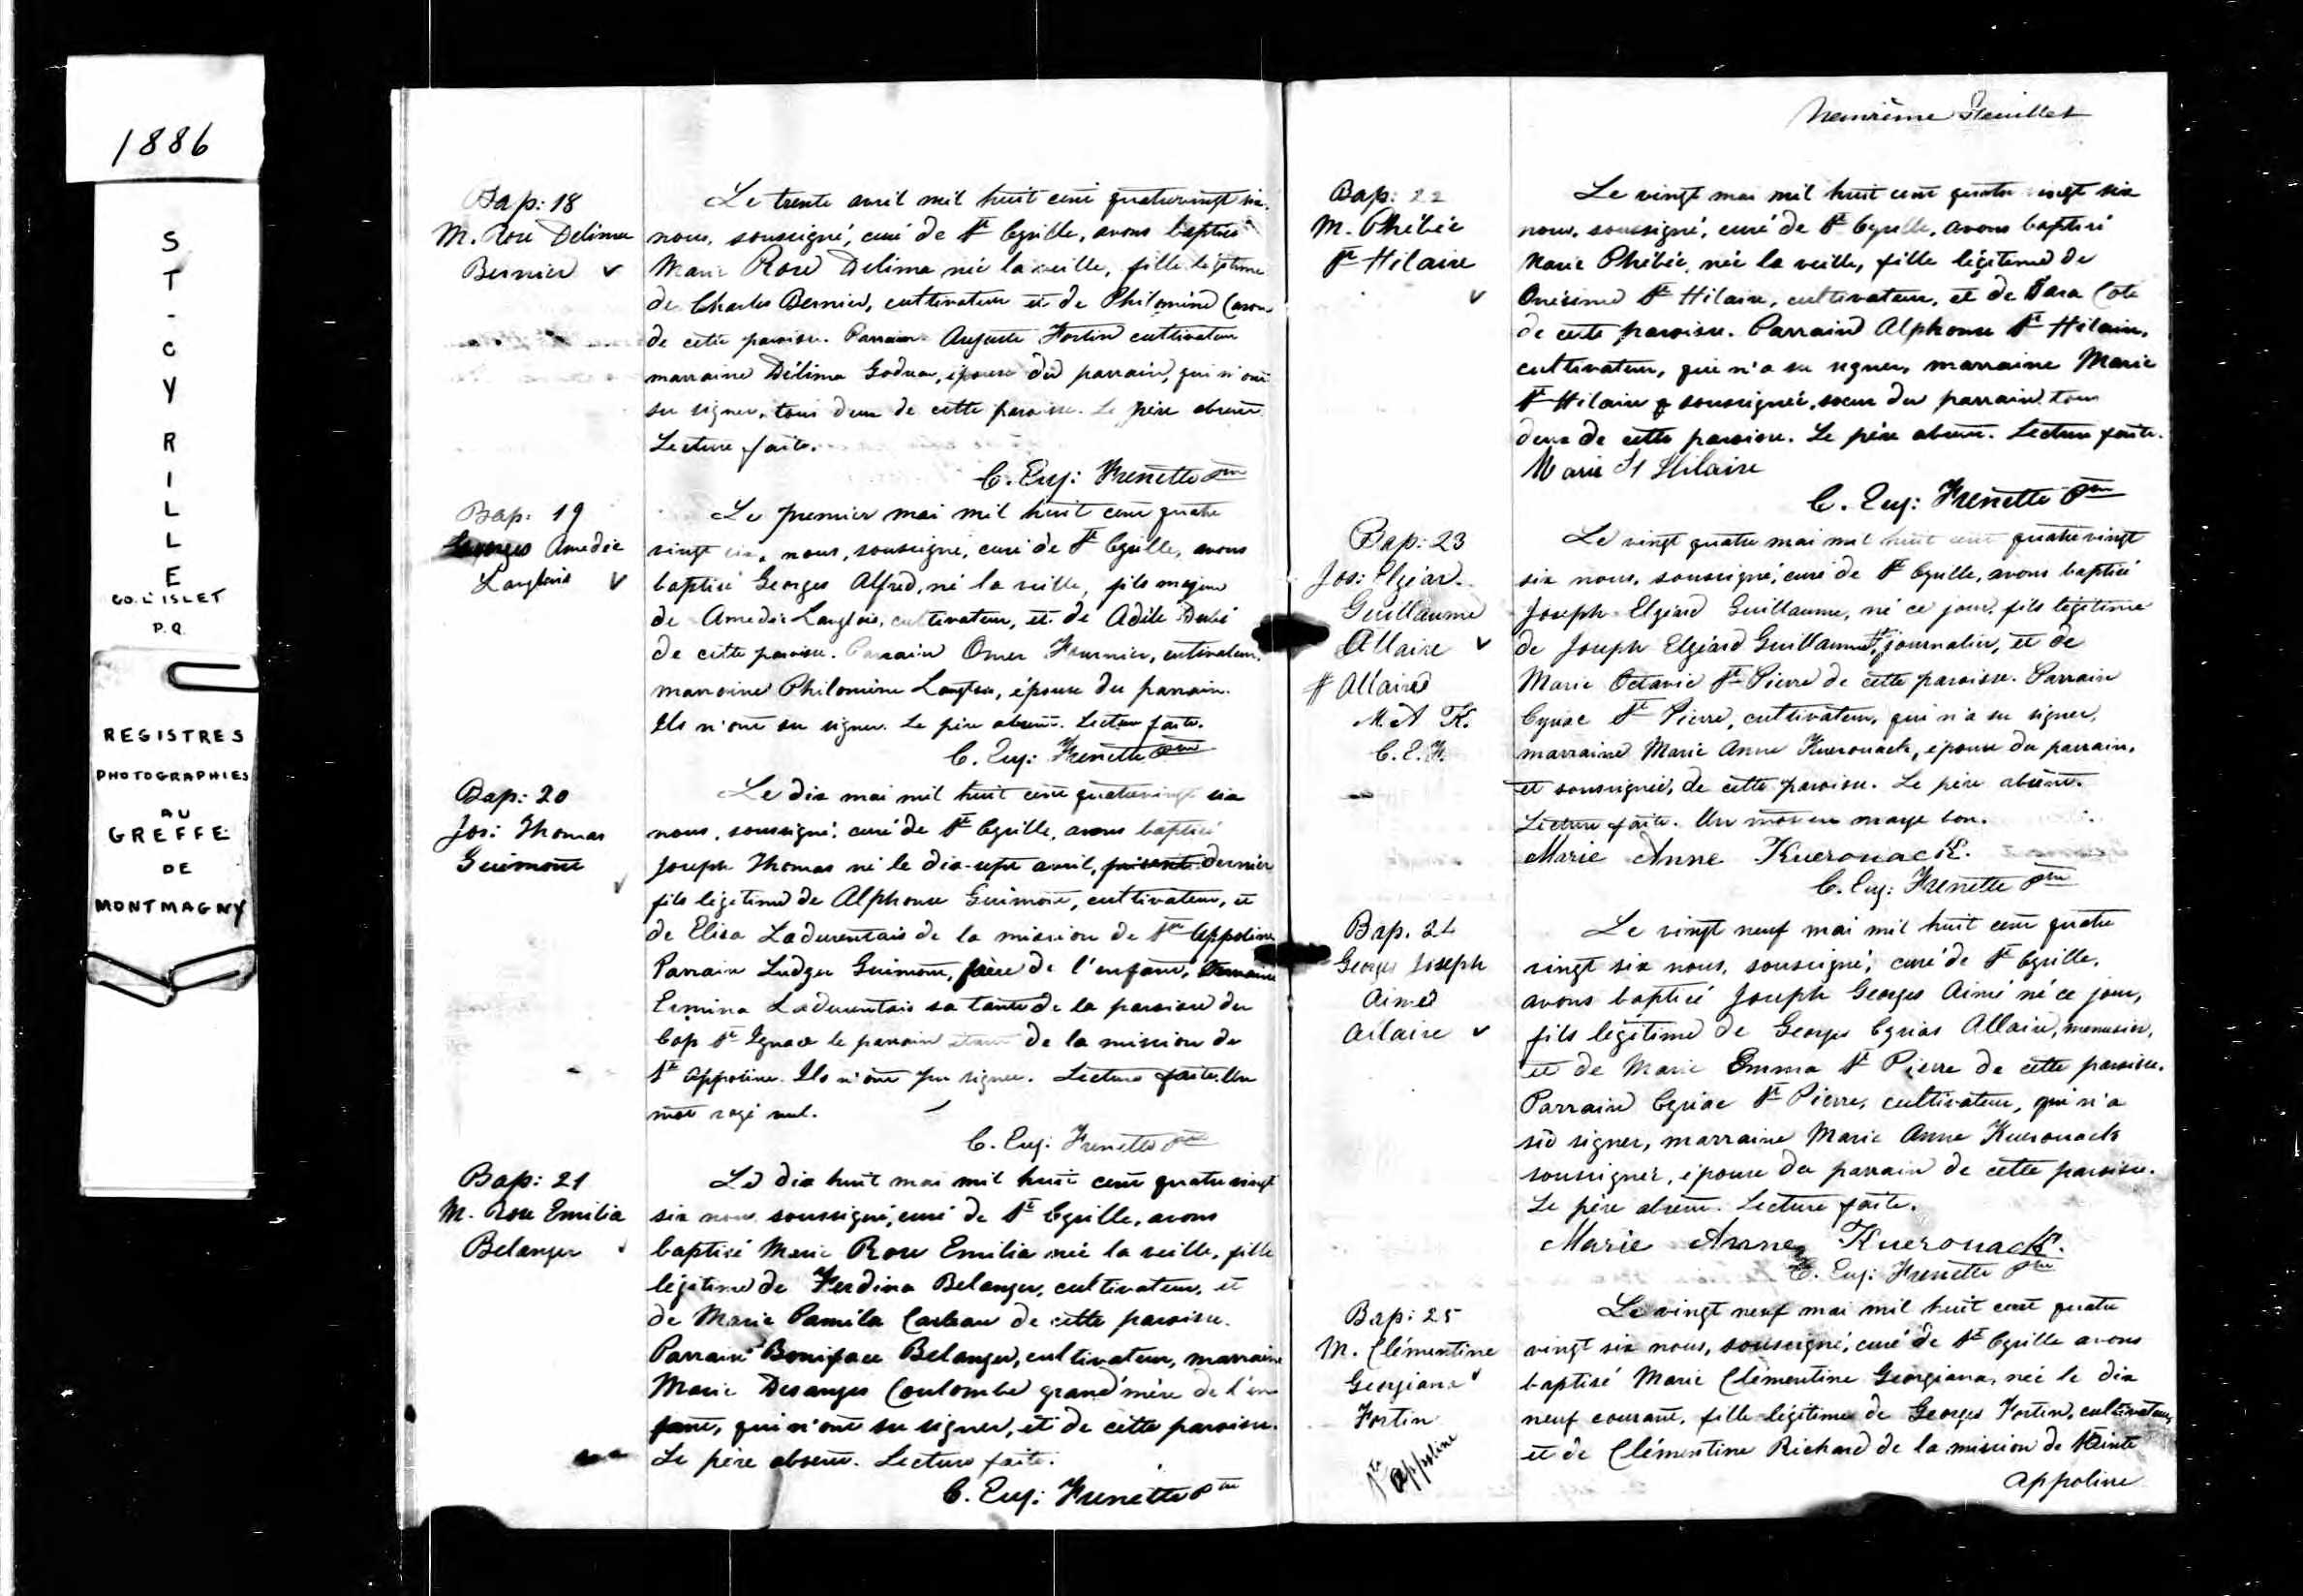 1886
ST-CYRILLE
CO. L'ISLET
P.Q.
REGISTRES
PHOTOGRAPHIES
AU
GREFFE
DE
MONTMAGNY
Bap: 18
M. Rose Delima
Bernier
Le trente avril mil huit cent quatrevingt six
nous, soussigné, curé de St Cyrille, avons baptisé
Marie Rose Delima née la veille, fille légitime
de Charles Bernier, cultivateur et de Philomène Caron
de cette paroisse. Parrain Auguste Fortin cultivateur
marraine Délima Godreau, épouse du parrain, qui n'ont
su signer, tous deux de cette paroisse. Le père absent
Lecture faite.
C. Eug: Frenette Ptre
Bap: 19
Georges Amedée
Langlois
Le premier mai mil huit cent quatre
vingt six, nous, soussigné, curé de St Cyrille, avons
baptisé Georges Alfred, né la veille, fils
de Amedée Langlois, cultivateur, et de Adèle Dubé
de cette paroisse. Parrain Omer Fournier, cultivateur,
marraine Philomène Langlois, épouse du parrain.
Ils n'ont su signer. Le père absent. Lecture faite.
C. Eug: Frenette Ptre
Bap: 20
Jos: Thomas
Guimont
Le dix mai mil huit cent quatrevingt six
nous, soussigné, curé de St Cyrille, avons baptisé
Joseph Thomas né le dix-sept avril, présent dernier
fils légitime de Alphonse Guimont, cultivateur, et
de Elisa Ladurentais de la mission de Ste Appoline
Parrain Ludger Guimont, frère de l'enfant,
Ermina Ladurentais sa tante de la paroisse du
Cap St Ignace le parrain étant de la mission de
Ste Appoline. Ils n'ont pu signer. Lecture faite. Un
mot rayé nul.
C. Eug: Frenette Ptre
Bap: 21
M. Rose Emilia
Belanger
Le dix huit mai mil huit cent quatrevingt
six nous soussigné, curé de St Cyrille, avons
baptisé Marie Rose Emilia née la veille, fille
légitime de Ferdina Belanger, cultivateur, et
de Marie Pamila de cette paroisse.
Parrain Boniface Belanger, cultivateur, marraine
Marie Desanges Coulombe grand'mère de l'en
fant, qui n'ont su signer, et de cette paroisse.
Le père absent. Lecture faite.
C. Eug: Frenette Ptre
Neuvième Feuillet
Bap: 22
M. Phébée
St Hilaire
Le vingt mai mil huit cent quatre vingt six
nous, soussigné, curé de St Cyrille, avons baptisé
Marie Phébée, née la veille, fille légitime de
Onésime St Hilaire, cultivateur, et de Sara Coté
de cette paroisse. Parrain Alphonse St Hilaire,
cultivateur, qui n'a su signer, marraine Marie
St Hilaire soussignée, soeur du parrain tous
deux de cette paroisse. Le père absent. Lecture faite.
Marie St Hilaire
C. Eug: Frenette Ptre
Bap: 23
Jos: Elzéar
Guillaume
Allaire
# Allaire
M. A K.
C. E. F.
Le vingt quatre mai mil huit cent quatrevingt
six nous, soussigné, curé de St Cyrille, avons baptisé
Joseph Elzéard Guillaume, né ce jour, fils légitime
de Joseph Elzéard Guillaume #, journalier, et de
Marie Octavie St Pierre de cette paroisse. Parrain
Cyriac St Pierre, cultivateur, qui n'a su signer,
marraine Marie Anne Kuerouack, épouse du parrain,
et soussignée, de cette paroisse. Le père absent.
Lecture faite. Un mot en marge bon.
Marie Anne Kuerouack.
C. Eug: Frenette Ptre
Bap. 24
Georges Joseph
Aimé
Allaire
Le vingt neuf mai mil huit cent quatre
vingt six nous, soussigné, curé de St Cyrille,
avons baptisé Joseph Georges Aimé né ce jour,
fils légitime de Georges Cyrias Allaire, menuisier,
et de Marie Emma St Pierre de cette paroisse.
Parrain Cyriac St Pierre, cultivateur, qui n'a
sû signer, marraine Marie Anne Kuerouack
soussignée, épouse du parrain de cette paroisse.
Le père absent. Lecture faite.
Marie Anne Kuerouack.
C. Eug: Frenette Ptre
Bap: 25
M. Clémentine
Georgiana
Fortin
Ste Appoline
Le vingt neuf mai mil huit cent quatre
vingt six nous, soussigné, curé de St Cyrille avons
baptisé Marie Clémentine Georgiana, née le dix
neuf courant, fille légitime de Georges Fortin, cultivateur,
et de Clémentine Richard de la mission de Sainte
Appoline